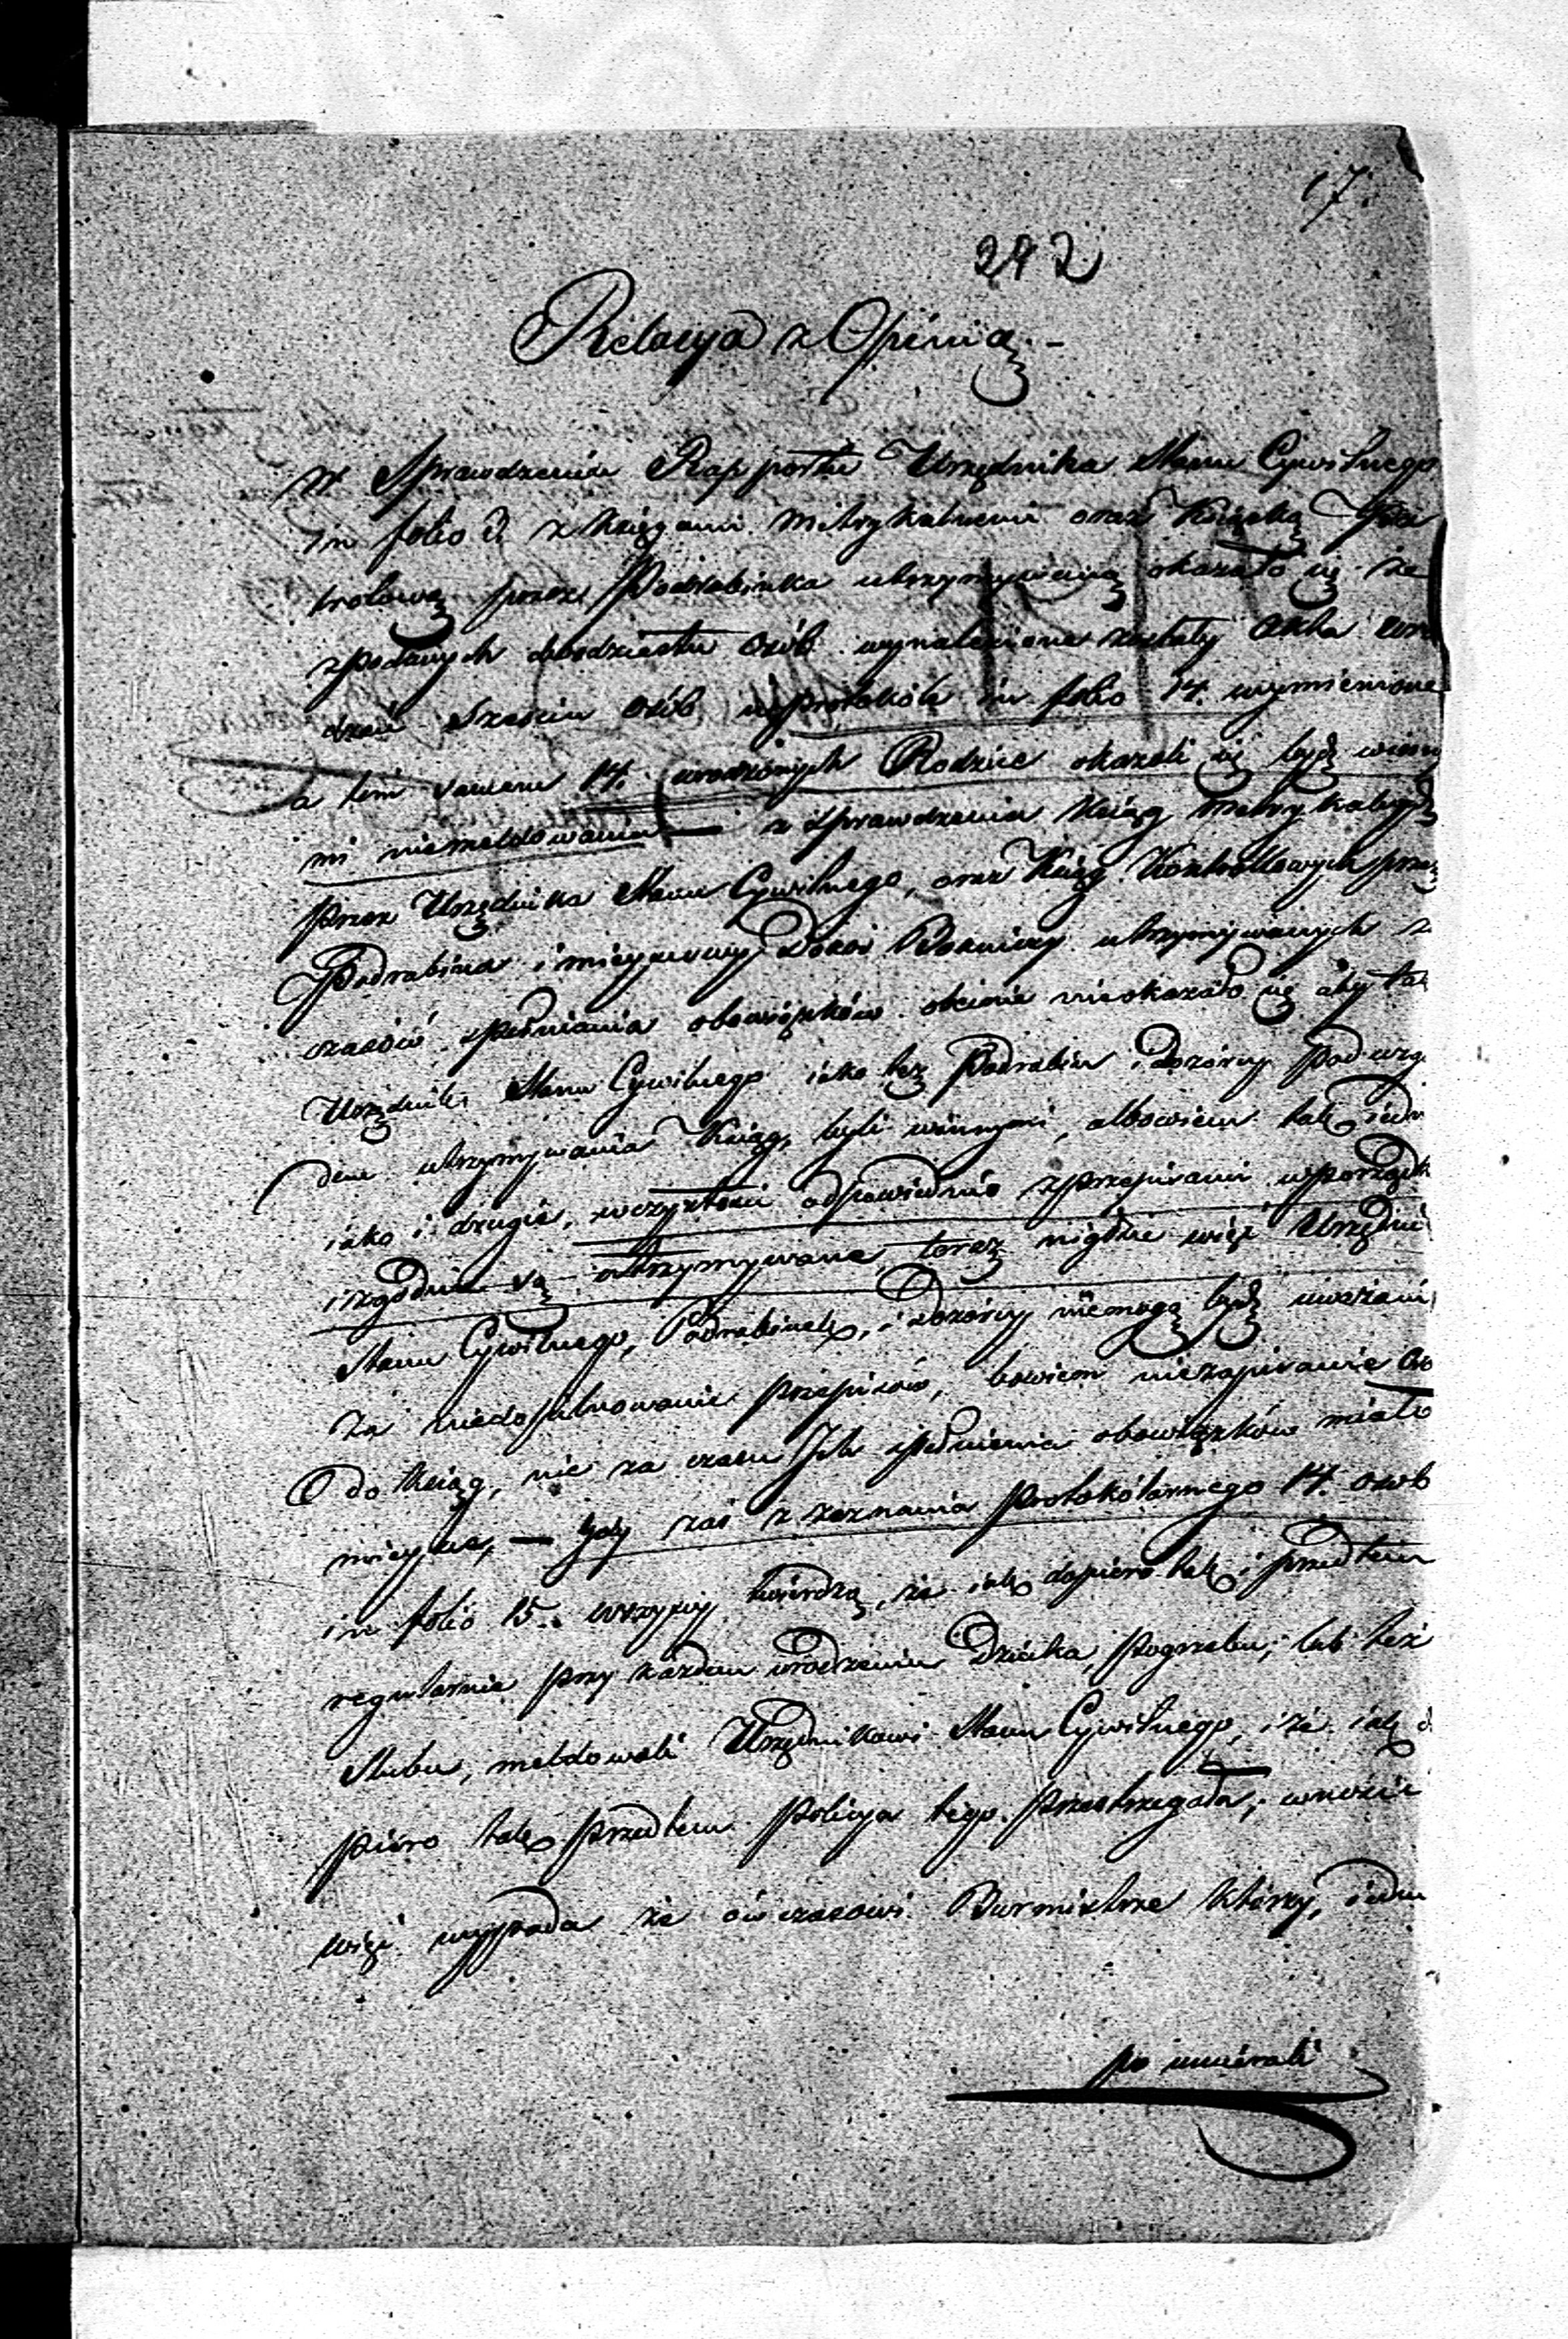 17.
292
Relacya z Opinią. -
W Sprawdzeniu Rapportu Urzędnika Stanu Cywilnego
in folio z Księgami Metrykalnemi oraz Książką
trolową przez Podrabinka utrzymywaną okazało się że
zpodanych dwudziestu Osób wynalezione zostały Akta uro
dzeń Sześciu Osób w protokóle in folio 14. wymienione
a tem samem 14. urodzonych Rodzice okazali się bydź winny
mi niemeldowania — z Sprawdzenia Ksiąg metrykalnych
przez Urzędnika Stanu Cywilnego, oraz Ksiąg Kontrollowych przez
Podrabina i mieyscowy Dozór Bożniczy utrzymywanych z
czasów spełniania obowiązków obecnie nieokazało się aby tak
Urzędnik Stanu Cywilnego iako też Podrabin i dozórcy pod wzglę
dem utrzymywania Ksiąg, byli winnymi, albowiem tak iedn
iako i drugie, wczystości odpowiednio zprzepisami wporządk
i zgodnie są utrzymywane, teraz nigdzie więc Urzędnik
Stanu Cywilnego, Podrabinek, i Dozórcy niemogą bydź uważani
za niedopilnowanie przepisów, bowiem niezapisanie Ow
do Ksiąg, nie za czasu Ich spełnienia obowiązków miało
mieysce, — gdy zaś z zeznania Protokólarnego 14. osób
in folio 15. wszyscy twierdzą, że iak dopiero tak i przedtem
regularnie przy każdem urodzeniu Dziecka, pogrzebu, lub też
Slubu, meldowali Urzędnikowi Stanu Cywilnego, i że iak d
piero tak przedtem Policya tego przestrzegała; wnosić
więc wypada że ówczasowi Burmistrze którzy, iedn
po umierali